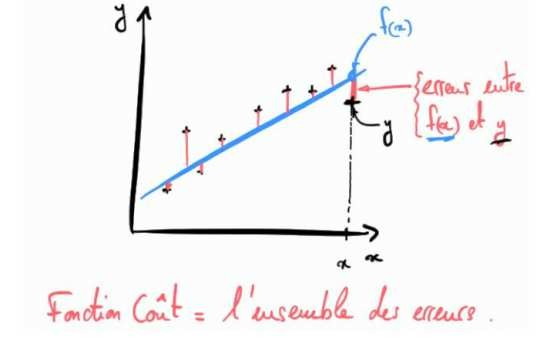 y
f(x)
{erreur entre
f(x) et y
y
x x
Fonction Coût = l'ensemble des erreurs.